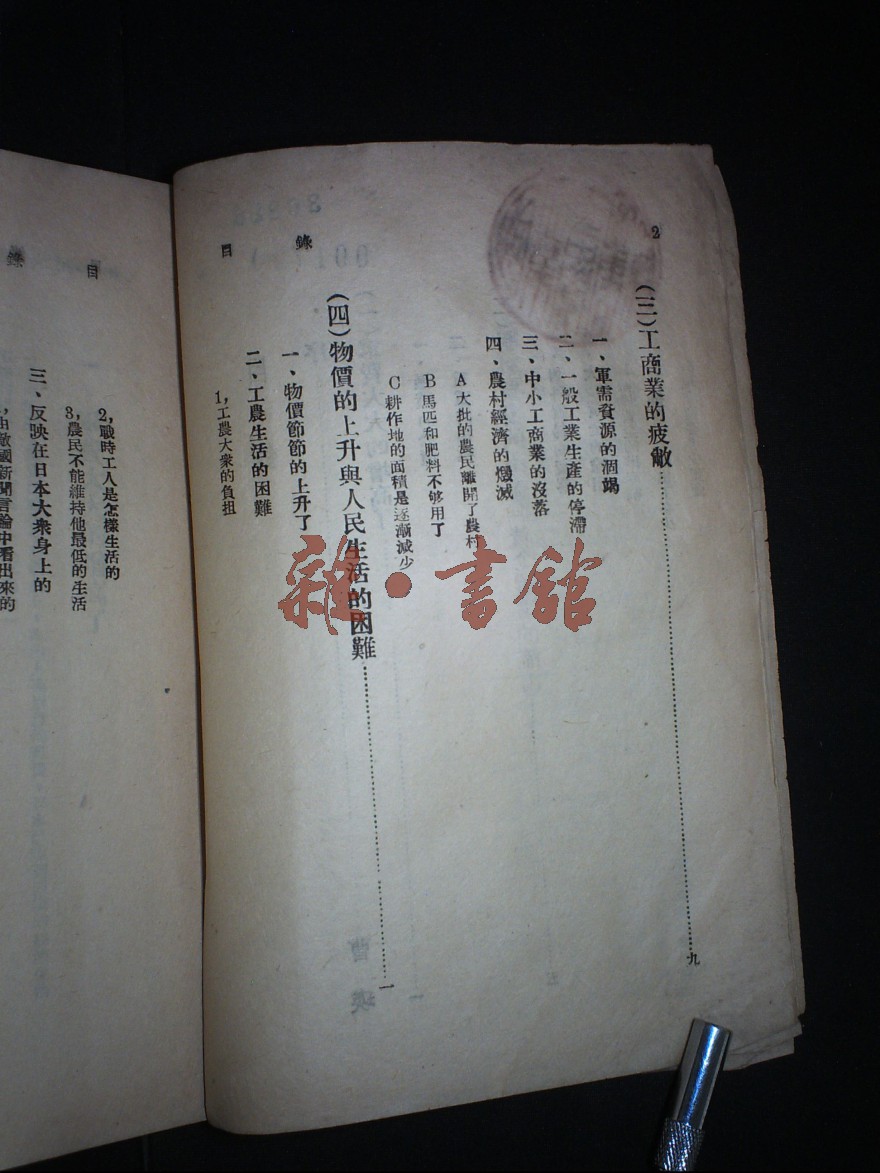 2
目錄
(三)工商業的疲敝……九
一、軍需資源的涸竭
二、一般工業生產的停滯
三、中小工商業的沒落
四、農村經濟的燬滅
A大批的農民離開了農村
B馬匹和肥料不够用了
C耕作地的面積是逐漸減少
(四)物價的上升與人民生活的困難……一
一、物價節節的上升了
二、工農生活的困難
1,工農大衆的負担
目錄
2,戰時工人是怎樣生活的
3,農民不能維持他最低的生活
三、反映在日本大衆身上的
由敵國新聞言論中看出來的
雜·書館